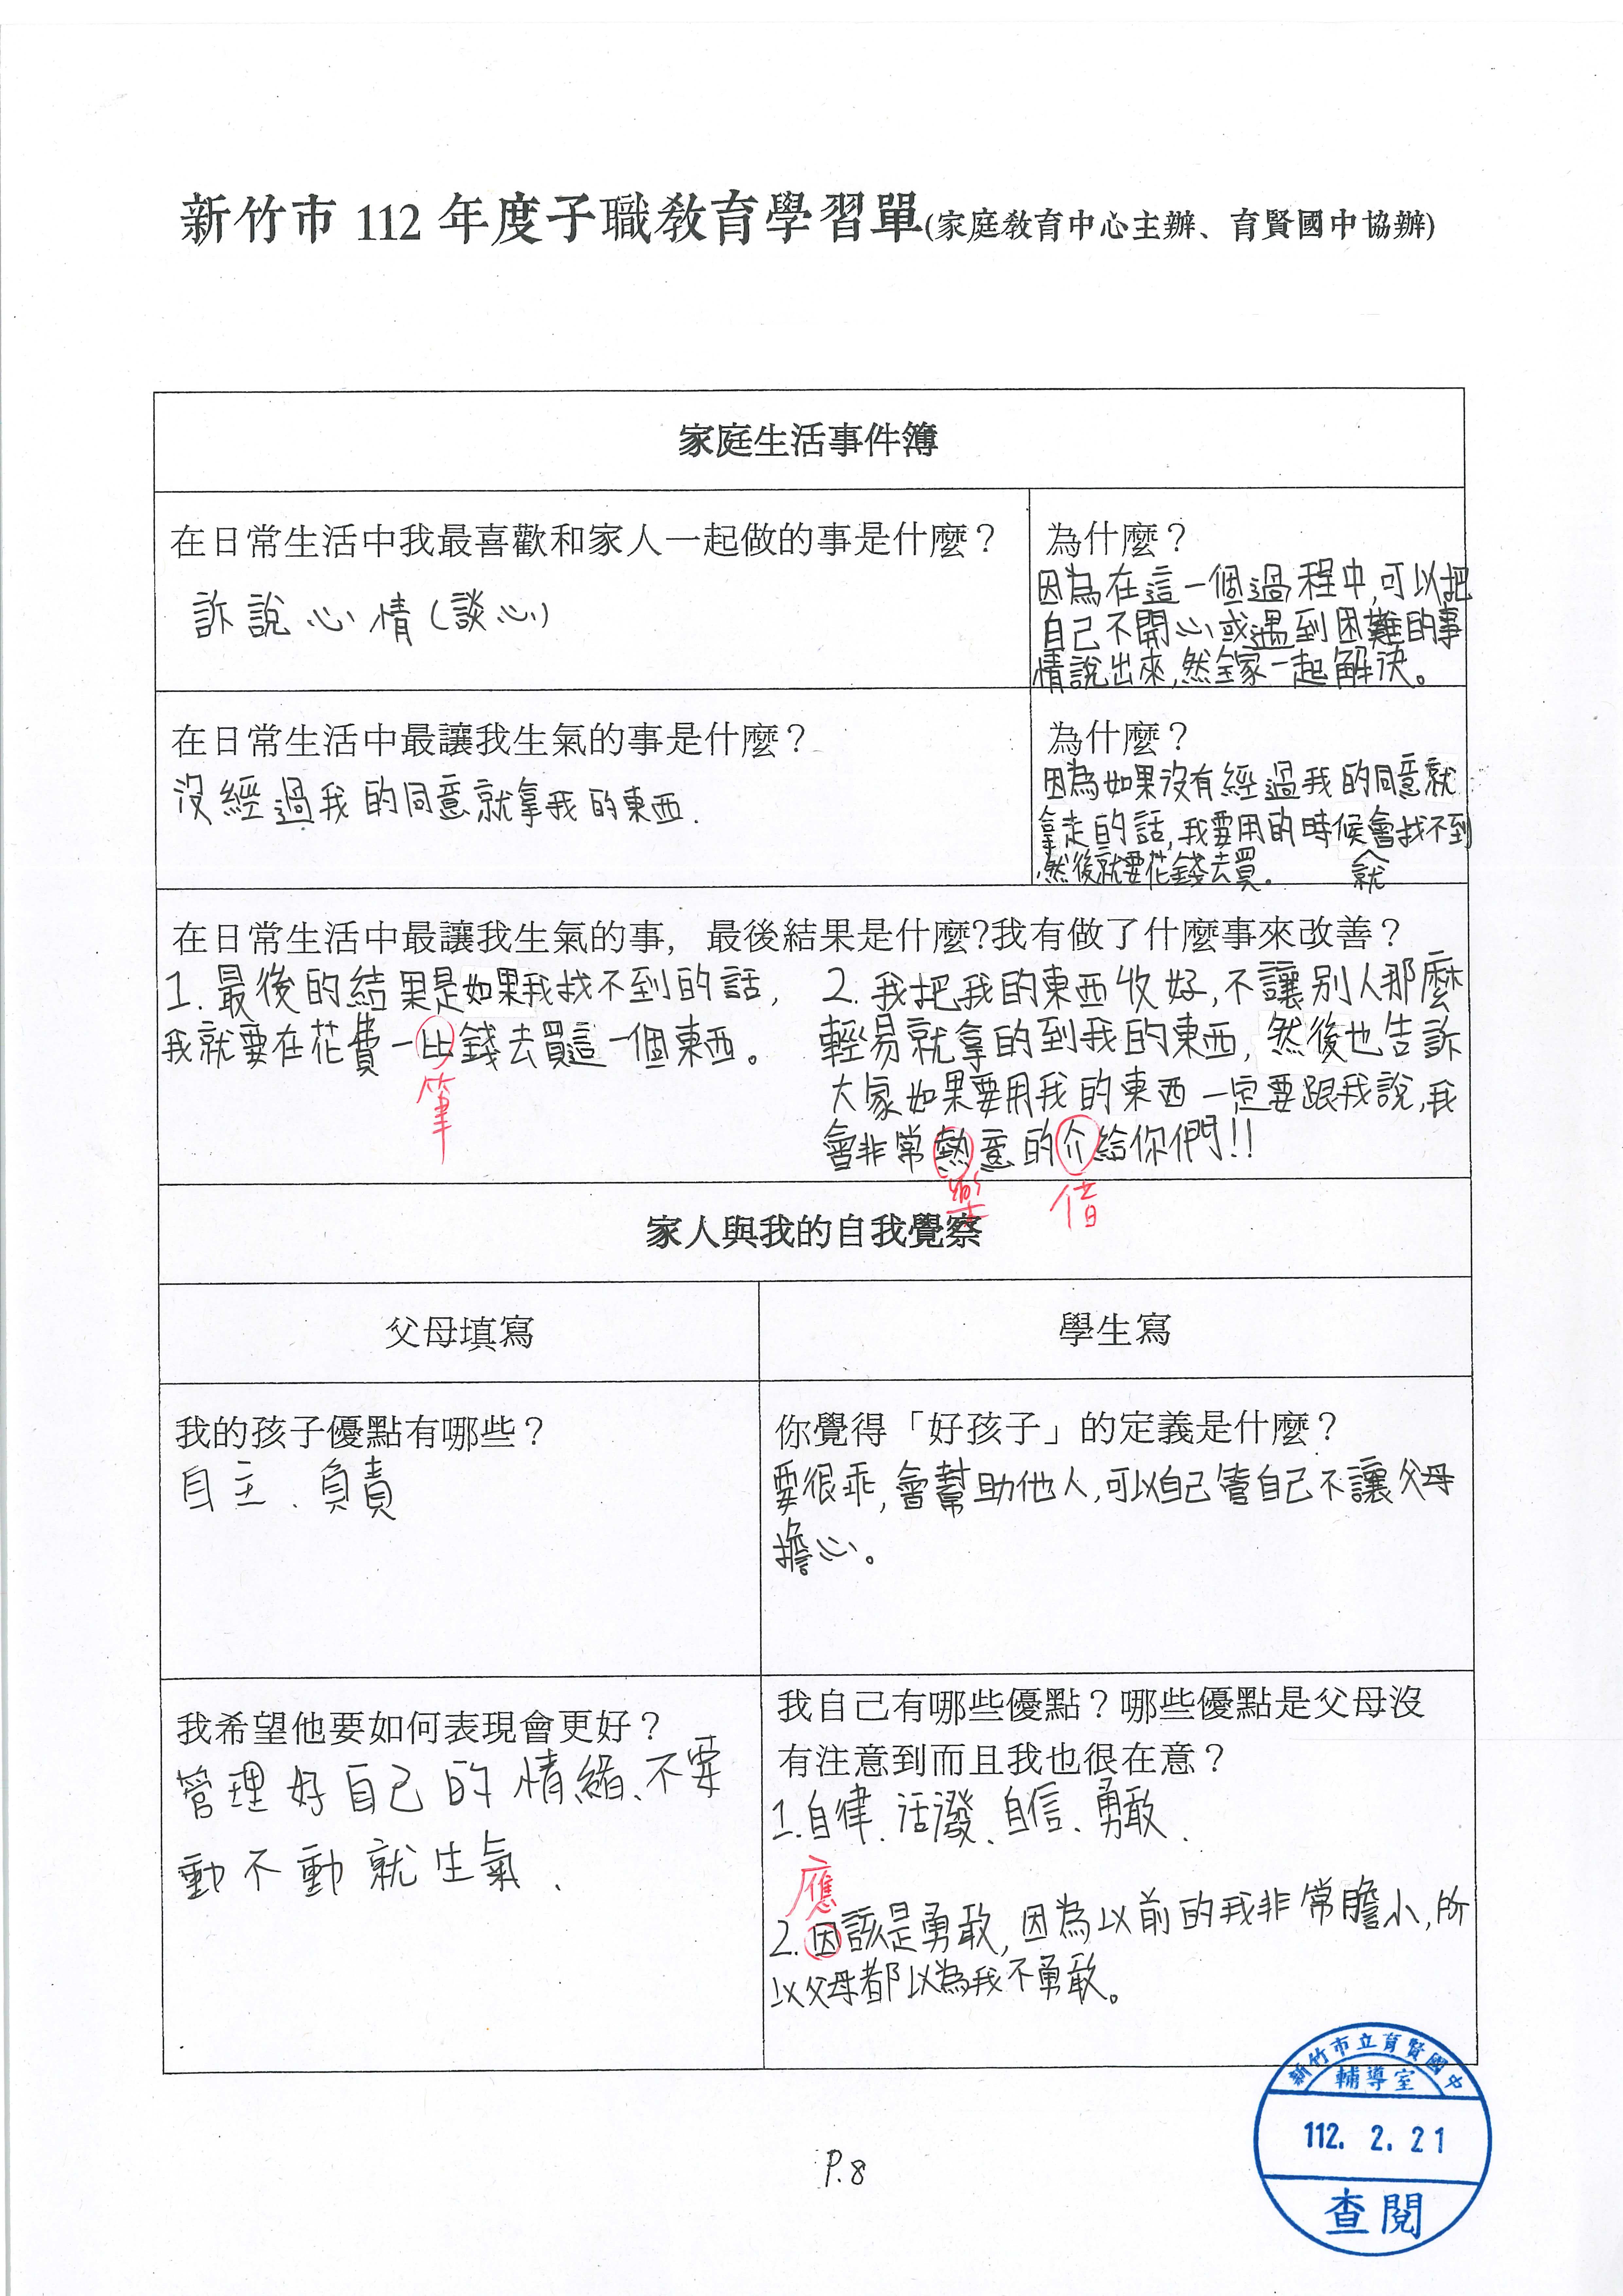 新竹市 112 年度子職教育學習單(家庭教育中心主辦、育賢國中協辦)
家庭生活事件簿
在日常生活中我最喜歡和家人一起做的事是什麼？
訴說心情(談心)
為什麼？
因為在這一個過程中,可以把
自己不開心或遇到困難的事
情說出來,然全家一起解決。
在日常生活中最讓我生氣的事是什麼？
沒經過我的同意就拿我的東西.
為什麼？
因為如果沒有經過我的同意就
拿走的話,我要用的時候會找不到
就
,然後就要花錢去買。
在日常生活中最讓我生氣的事，最後結果是什麼?我有做了什麼事來改善？
1. 最後的結果是如果我找不到的話,
我就要在花費一比錢去買這一個東西。
筆
2. 我把我的東西收好,不讓別人那麼
輕易就拿的到我的東西,然後也告訴
大家如果要用我的東西一定要跟我說,我
會非常熱意的介給你們!!
樂
借
家人與我的自我覺察
父母填寫
學生寫
我的孩子優點有哪些？
自主、負責
你覺得「好孩子」的定義是什麼？
要很乖,會幫助他人,可以自己管自己不讓父母
擔心。
我希望他要如何表現會更好？
管理好自己的情緒、不要
動不動就生氣、
我自己有哪些優點？哪些優點是父母沒
有注意到而且我也很在意？
1.自律、活潑、自信、勇敢、
應
2.因該是勇敢,因為以前的我非常膽小,所
以父母都以為我不勇敢。
新竹市立育賢國中
輔導室
112. 2. 21
查閱
P.8